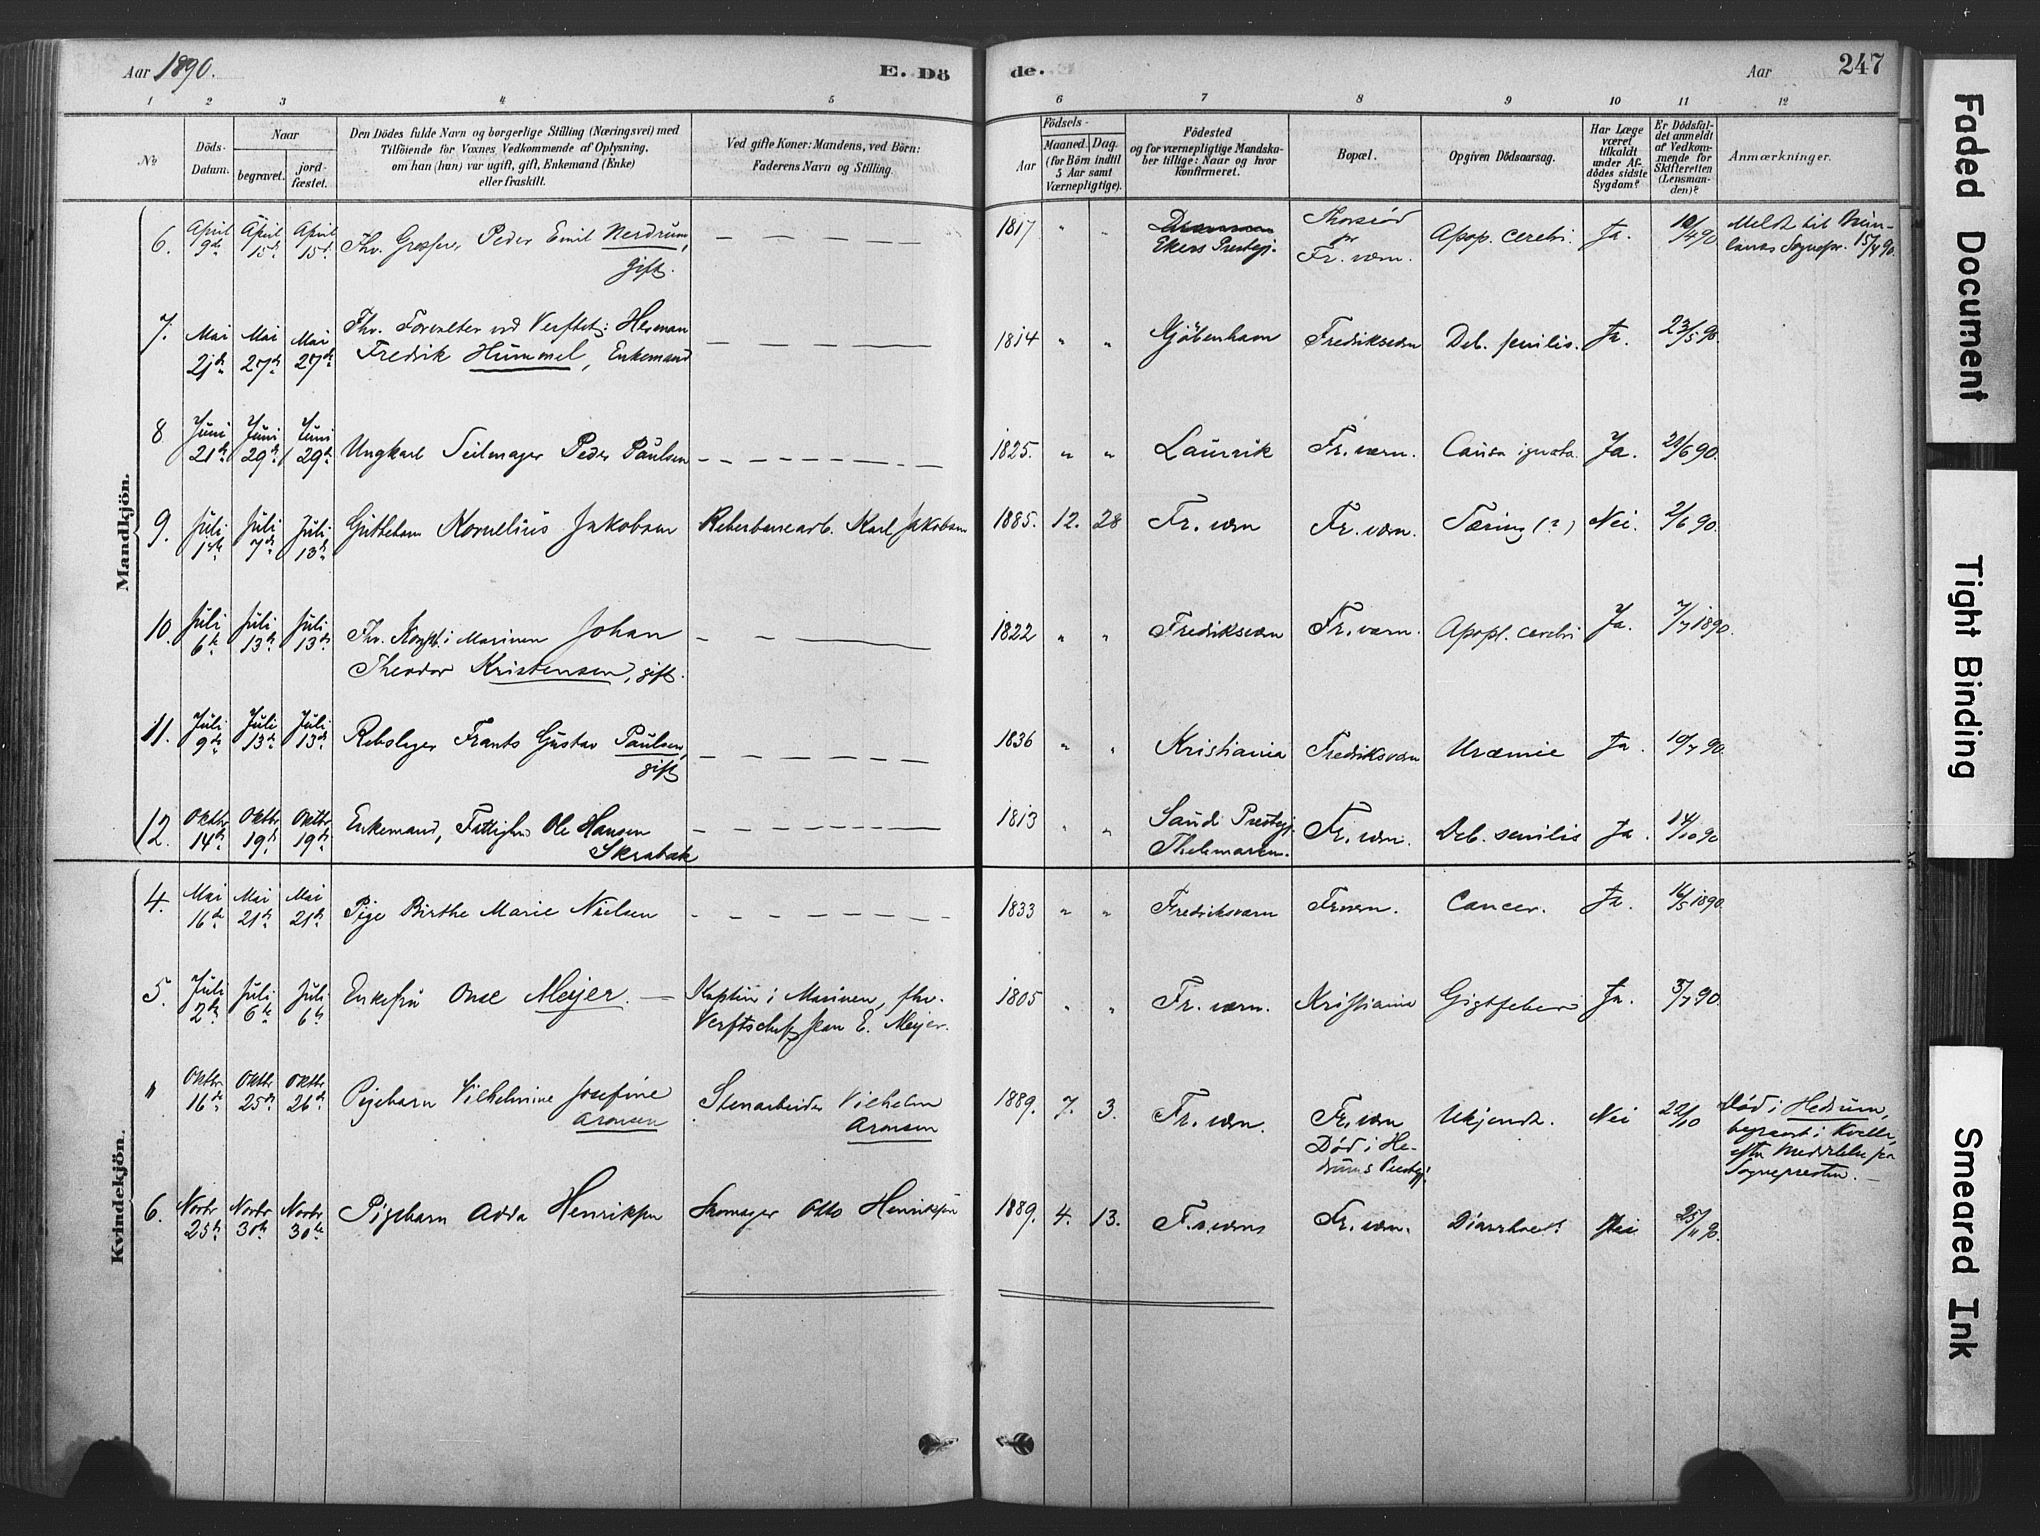 Aar 1890.
E. Dö
de.
Aar
247
1 2 3 4 5 6 7 8 9 10 11 12
No
Döds-
Datum.
Naar
begravet.
jord-
fæstet.
Den Dödes fulde Navn og borgerlige Stilling (Næringsvei) med
Tilföiende for Voxnes Vedkommende af Oplysning,
om han (hun) var ugift, gift, Enkemand (Enke)
eller fraskilt.
Ved gifte Koner: Mandens, ved Börn:
Faderens Navn og Stilling.
Födsels-
Aar
Maaned. Dag.
(for Börn indtil
5 Aar samt
Værnepligtige).
Födested
og for værnepligtige Mandska-
ber tillige: Naar og hvor
konfirmeret.
Bopæl.
Opgiven Dödsaarsag.
Har Læge
været
tilkaldt
under Af-
dödes sidste
Sygdom?
Er Dödsfal-
det anmeldt
af Vedkom-
mende for
Skifteretten
(Lensman-
den)?
Anmærkninger.
Mandkjön.
6. April 9de April 15d. April 15d. Fhv. Peder Emil Nerdrum, gift. 1817 " " Ekers Prestegj. Fr. værn. Apop. cerebri Ja. 10/4 90 Meldt til
Sognepr. 15/4 90.
7. Mai 21de Mai 27de Mai 27de Fhv. Forvalter ved Verftet: Herman
Fredrik Hummel, Enkemand 1814 " " Kjöbenhavn Fredriksværn Deb. senilis. Ja. 23/5 90.
8 Juni 21de Juni 29de Juni 29de Ungkarl Seilmager Peder Paulsen 1825. " " Laurvik Fr. værn. Causa ignota. Ja. 21/6 90.
9. Juli 1ste Juli 7de Juli 13de Guttebarn Kornelius Jakobsen Reberbanearb. Karl Jakobsen 1885. 12. 28 Fr. værn Fr. værn. Tæring (?) Nei. 2/6 90.
10. Juli 6te Juli 13de Juli 13de Fhv. i Marinen Johan
Theodor Kristensen, gift. 1822 " " Fredriksværn Fr. værn. Apopl. cerebri Ja. 7/7 1890.
11. Juli 9de Juli 13de Juli 13de Rebslager Frants Gustav Paulsen,
gift 1836 " " Kristiania Fredriksværn Uræmie Ja. 10/7 90.
12. Oktbr 14de Oktbr 19de Oktbr 19de Enkemand, Fattiglem Ole Hansen
Skrabak 1813 " " Saude Prestegj.
Thelemarken. Fr. værn. Deb. senilis Ja. 14/10 90
Kvindekjön.
4. Mai 16de Mai 21de Mai 21de Pige Birthe Marie Nielsen 1833 " " Fredriksværn Frværn. Cancer. Ja. 16/5 1890.
5. Juli 2den Juli 6te Juli 6te Enkefru Onse Meyer. Kaptein i Marinen, fhv.
Verftschef Jean E. Meyer. 1805 " " Fr. værn. Kristiania Gigtfeber Ja. 3/7 90.
" Oktbr 16de Oktbr 25de Oktbr 26de Pigebarn Vilhelmine Josefine
Aronsen Stenarbeider Vilhelm
Aronsen 1889. 7. 3. Fr. værn. Fr. værn
Död i He-
drums Prestegj. Ukjendt. Nei 22/10 Död i Hedrum,
begravet i Kvelle,
efter Meddelelse fra
Sognepresten. —
6. Novbr 25de Novbr 30te Novbr 30te Pigebarn Adda Henriksen Skomager Otto Henriksen 1889. 4. 13. Fr. værn Fr. værn. Diarrhoe. Nei 25/11 90.
Faded Document
Tight Binding
Smeared Ink